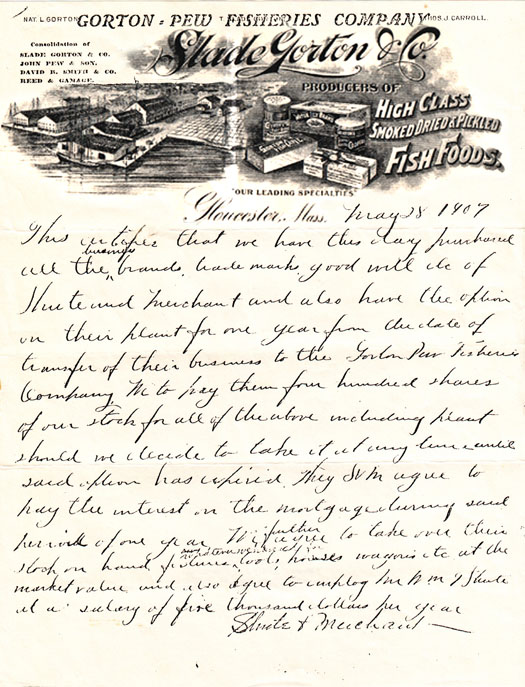 NAT. L. GORTON
GORTON-PEW FISHERIES COMPANY
THOS. J. CARROLL.
Consolidation of
SLADE GORTON & CO.
JOHN PEW & SON.
DAVID B. SMITH & CO.
REED & GAMAGE.
Slade Gorton & Co.
PRODUCERS OF
HIGH CLASS
SMOKED DRIED & PICKLED
FISH FOODS.
"OUR LEADING SPECIALTIES"
Gloucester, Mass. May 28 1907
This certifies that we have this day purchased
business
all the brands, trade marks, good will etc of
Shute and Merchant and also have the option
on their plant for one year from the date of
transfer of their business to the Gorton Pew Fisheries
Company. We to pay them four hundred shares
of our stock for all of the above including plant
should we decide to take it at any time until
said option has expired. They S & M agree to
pay the interest on the mortgage during said
period of one year. We further agree to take over their
stock on hand, fixtures, tools, horses wagons etc at the
market value and also agree to employ Mr Wm J Shute
at a salary of five thousand dollars per year
Shute & Merchant